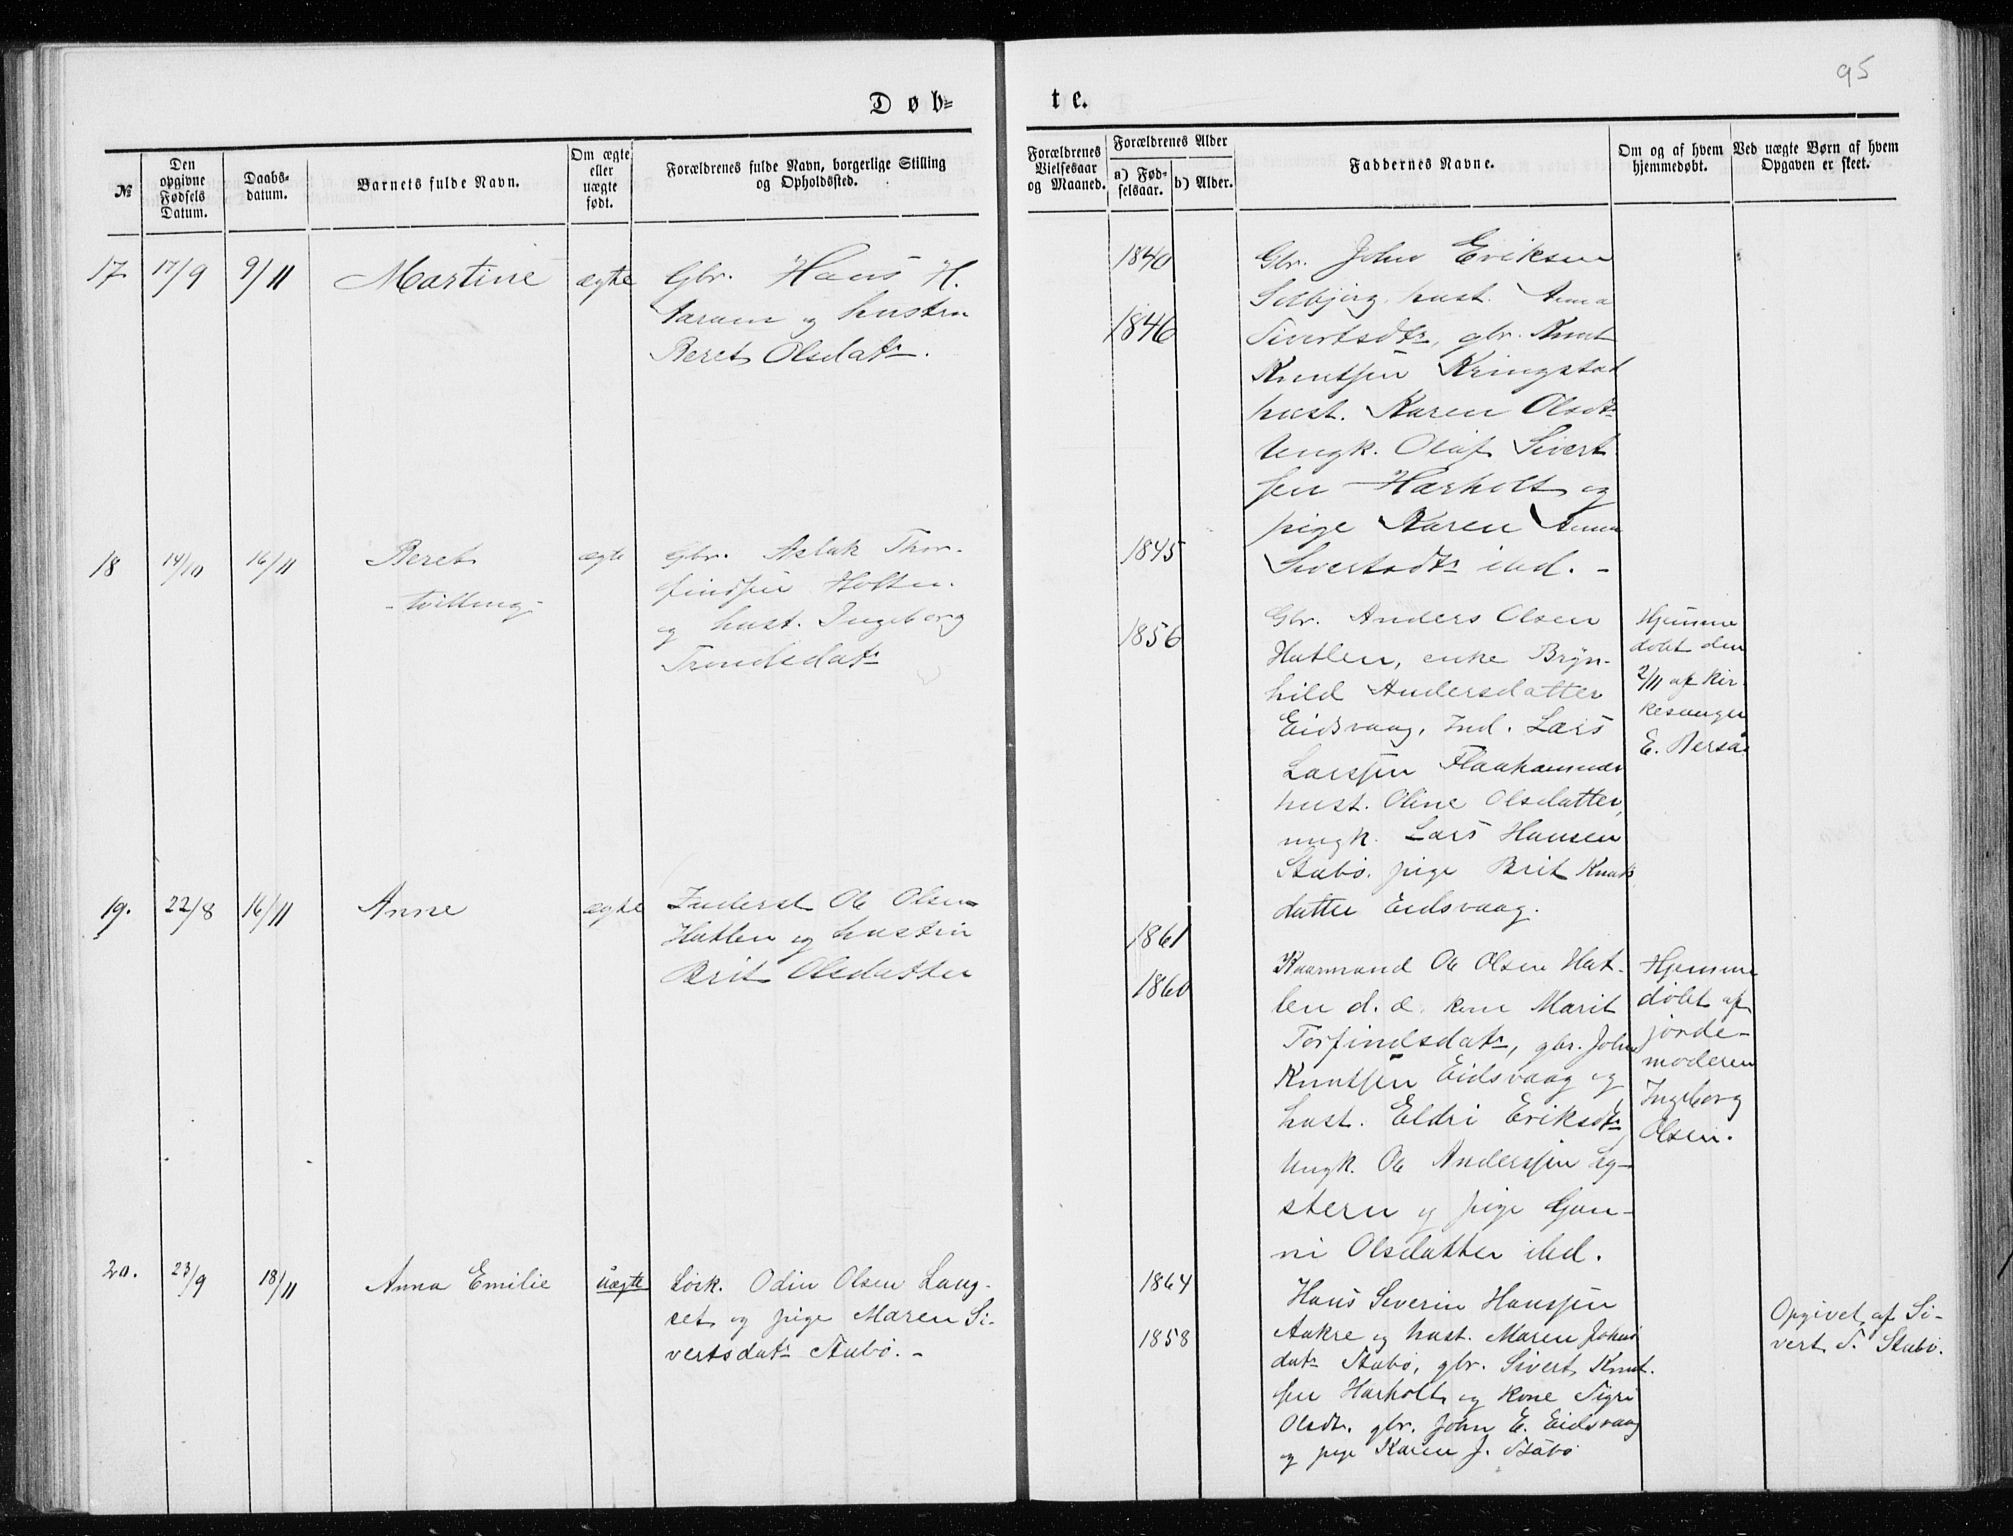 95
Døb-
te.
№
Den opgivne Fødsels Datum.
Daabs-datum.
Barnets fulde Navn.
Om ægte eller uægte født.
Forældrenes fulde Navn, borgerlige Stilling og Opholdssted.
Forældrenes Vielsesaar og Maaned.
Forældrenes Alder
a) Fødselsaar.
b) Alder.
Faddernes Navne.
Om og af hvem hjemmedøbt.
Ved uægte Børn af hvem Opgaven er skeet.
17
17/9
9/11
Martine
ægte
Gbr. Hans H.
og hustru
Beret Olsdatr.
1840
1846
Gbr. John Eriksen
Solbjørg hust. Anna
Sivertsdtr, gbr. Knut
Knutsen Kringstad
hust. Karen Olsdtr
Ungk. Olaf Sivert
sen Harholt og
pige Karen Anna
Sivertsdtr ibd. -
18
14/10
16/11
Beret
- tvilling -
ægte
Gbr. Aslak Thor-
findsen Holten
og hust. Ingeborg
Trondsdatr
1845
1856
Gbr. Anders Olsen
Hatlen, enke Bryn-
hild Andersdatter
Eidsvaag, Ind. Lars
Larssen Flaahammer
hust. Oline Olsdatter,
ungk. Lars Hansen
Stubø. pige Brit Knuts
datter Eidsvaag.
Hjemme
døbt den
2/11 af Kir-
kesanger
E. Bersaas
19.
22/8
16/11
Anne
ægte
Inderst Ole Olsen
Hatlen og hustru
Brit Olsdatter
1861
1860
Kaarmand Ole Olsen Hat-
len d. æ. kone Marit
Torfindsdatr, gbr. John
Knutsen Eidsvaag og
hust. Eldri Eriksdtr,
Ungk. Ole Anderssen Eg-
stern og pige Gun-
ni Olsdatter ibd.
Hjemme
døbt af
jorde-
moderen
Ingeborg
Olsen.
20.
23/9
18/11
Anna Emilie
uægte
Løsk. Odin Olsen Lang-
set og pige Maren Si-
vertsdatr Stubø. -
1864
1858
Hans Severin Hanssen
Aukre og hust. Maren Johns
datr Stubø, gbr. Sivert Knut-
sen Harholt og kone Sigri
Olsdtr. gbr. John E. Eidsvaag
og pige Karen J. Stubø
Opgivet af Si-
vert S. Stubø.